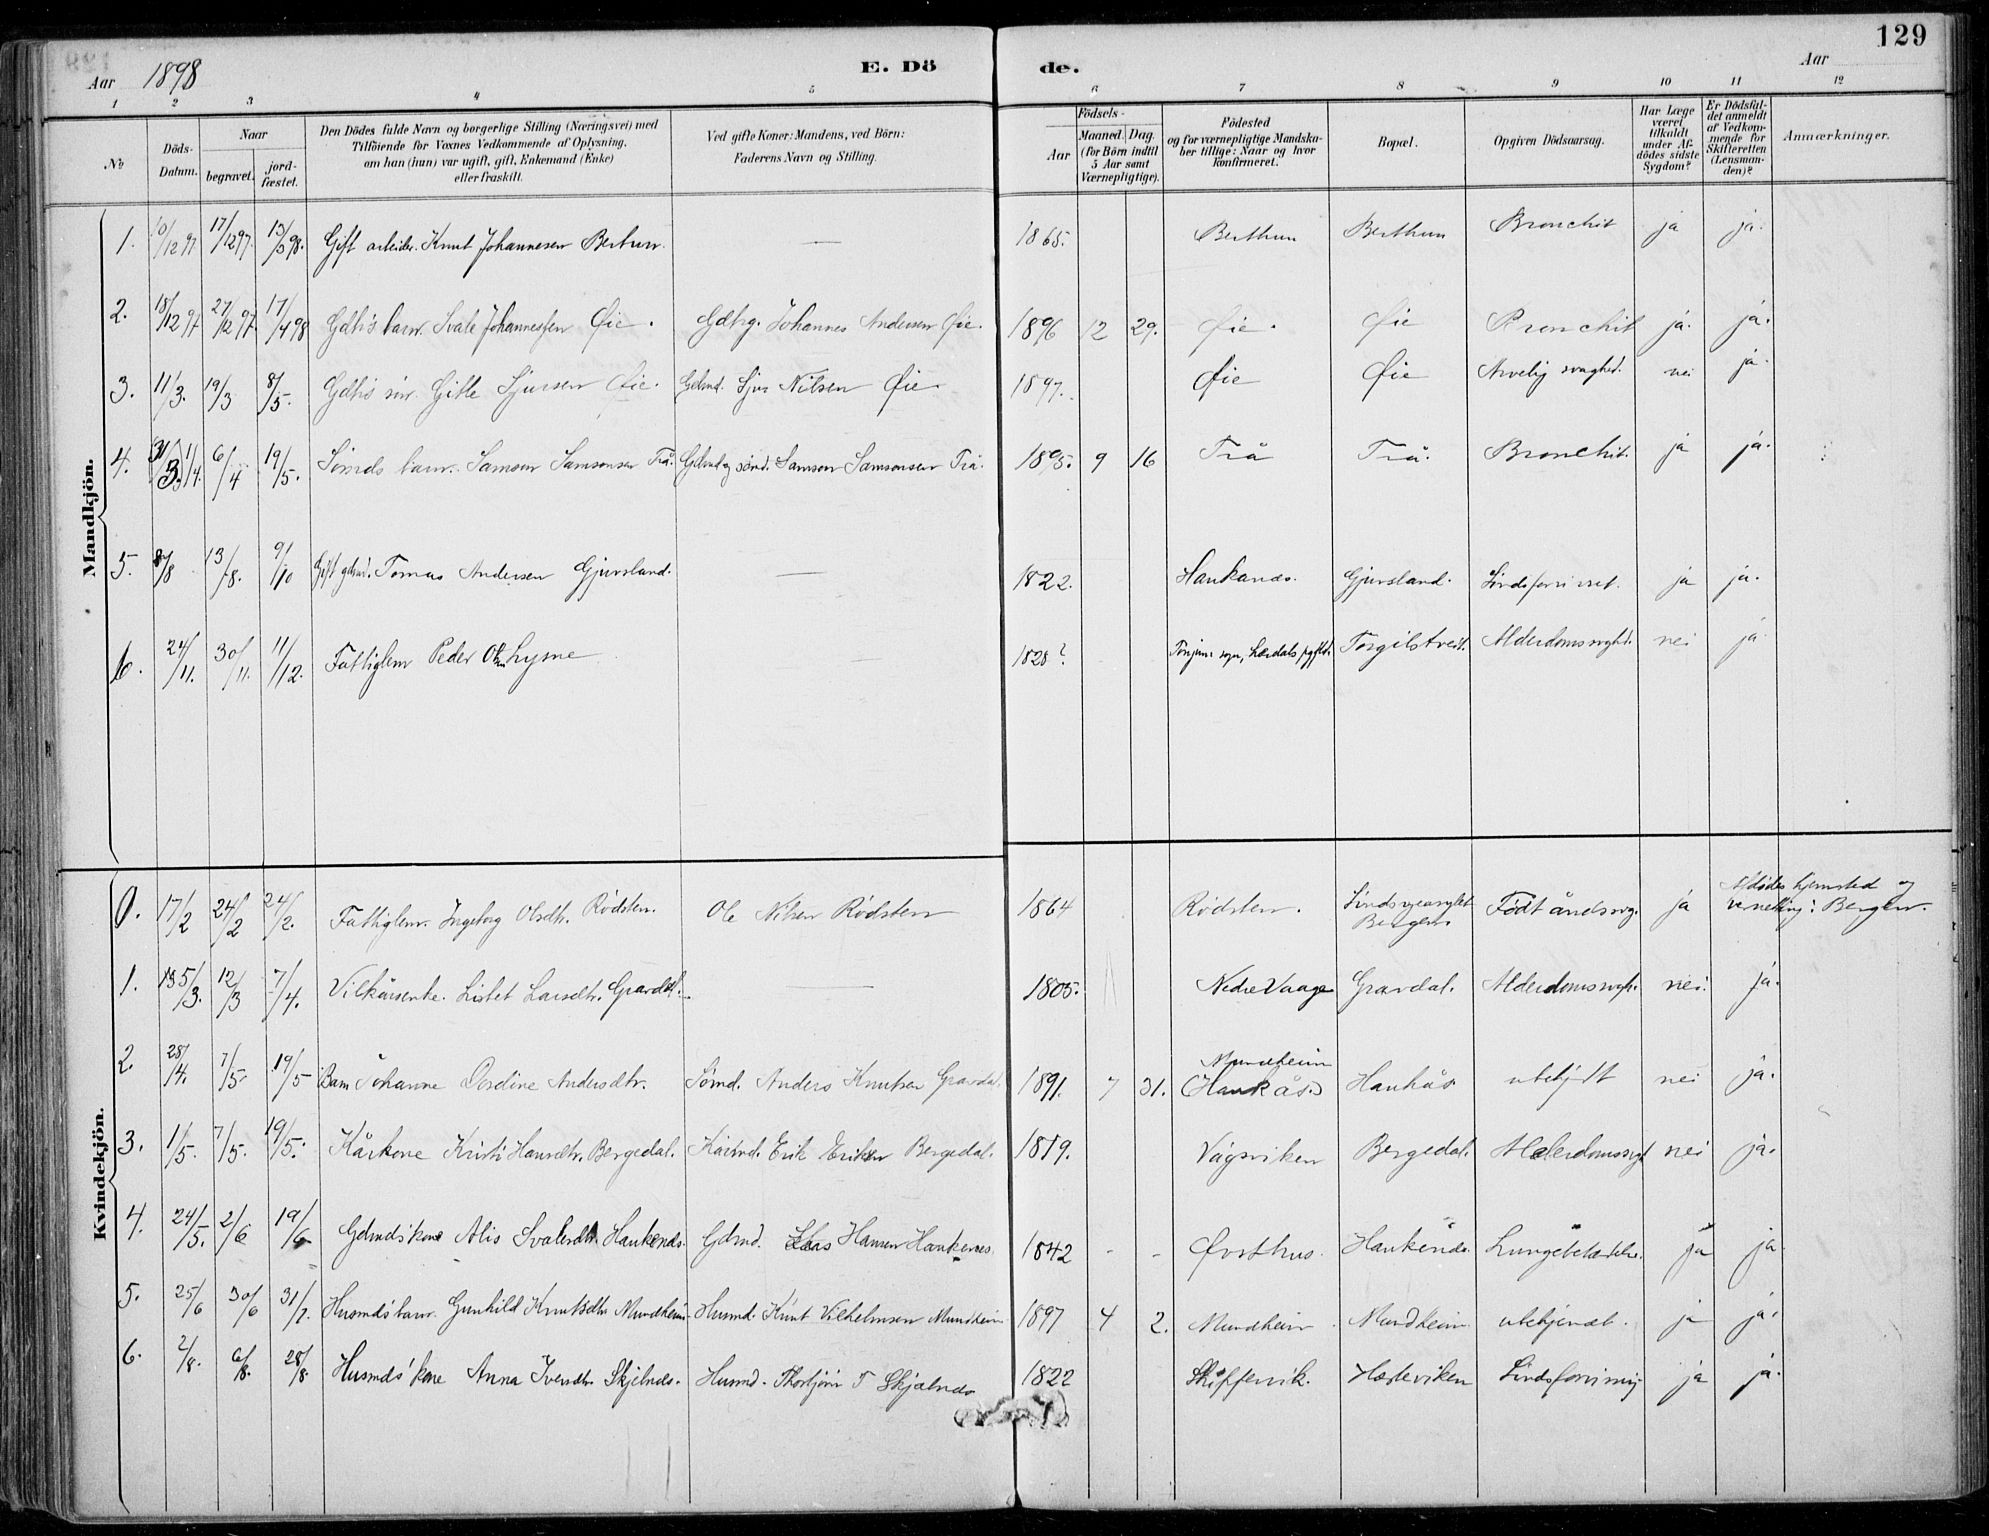 129
Aar 1898 E. Dö de. Aar
1 2 3 4 5 6 7 8 9 10 11 12
No
Döds-Datum.
Naar
begravet.
jord-fæstet.
Den Dödes fulde Navn og borgerlige Stilling (Næringsvei) med
Tilföiende for Voxnes Vedkommende af Oplysning,
om han (hun) var ugift, gift, Enkemand (Enke)
eller fraskilt.
Ved gifte Koner: Mandens, ved Börn:
Faderens Navn og Stilling.
Födsels-
Aar
Maaned. Dag.
(for Börn indtil
5 Aar samt
Værnepligtige).
Födested
og for værnepligtige Mandska-
ber tillige: Naar og hvor
konfirmeret.
Bopæl.
Opgiven Dödsaarsag.
Har Læge
været
tilkaldt
under Af-
dödes sidste
Sygdom?
Er Dödsfal-
det anmeldt
af Vedkom-
mende for
Skifteretten
(Lensman-
den)?
Anmærkninger.
Mandkjön.
1. 10/12 97 17/12 97. 13/3 98. Gift arbeider. Knut Johannesen Berthun. — 1865. Berthun Berthun Bronchit ja ja.
2. 18/12 97 27/12 97. 17/4 98 Gdbrs barn. Svale Johannessen Øie. Gdbrg. Johannes Andersen Øie. 1896 12 29. Øie. Øie Bronchit ja. ja.
3. 11/3. 19/3 8/5. Gdbrs søn. Gitle Sjursen Øie. Gdmd. Sjur Nilsen Øie. 1897. Øie Øie Arvelig svaghed. nei ja.
4. 31/3 1/4. 6/4 19/5. Sømds barn. Samson Samsonsen Trå. Gdmd og sømd. Samson Samsonsen Trå. 1895. 9 16 Trå Trå. Bronchit. ja ja.
5. 8/8 13/8. 9/10 Gift gdmd. Tomas Andersen Gjursland. — 1822. Haukanæs. Gjursland. ja ja.
6. 24/11. 30/11. 11/12. Fattiglem Peder Olsen Lysne — 1828? Tønjum sogn, Lærdals pgjld. Torgilstveit. Alderdomssvaghd. nei ja
Kvindekjön.
0. 17/2 24/2 24/2. Fattiglem. Ingeborg Olsdtr. Rødsten. Ole Nilsen Rødsten 1864 Rødsten. Sindssygeasylet Bergen Født åndssvag. ja Afdødes hjemsted og vernetting: Bergen.
1. 5/3. 12/3 7/4. Vilkårsenke. Lisbet Larsdtr. Gravdal. — 1805. Nedre Vaage Gravdal. Alderdomssvagh. nei. ja.
2. 28/4. 7/5. 19/5 Barn Johanne Dordine Andersdtr. Sømd. Anders Knutsen Gravdal. 1891. 7 31. Mundheim (Haukås.) Haukås. ubekjdt nei ja.
3. 1/5. 7/5. 19/5. Kårkone Kristi Hansdtr. Bergedal. Kårmd. Erik Eriksen Bergedal. 1819. Vågsviken Bergedal. Alderdomssvgt nei ja.
4. 24/5. 2/6 19/6 Gdmds kone Alis Svalesdtr. Haukenæs. Gdmd. Hansen Haukenes. 1842 - - Øvsthus. Haukenæs. Lungebetændelse. ja ja
5. 25/6 30/6 31/7. Husmds barn. Gunhild Knutsdtr. Mundheim. Husmd. Knut Vilhelmsen Mundheim 1897 4 2. Mundheim Mundheim ubekjendt. ja ja.
6. 2/8. 6/8. 28/8. Husmds kone Anna Iversdtr. Skjelnæs. Husmd. Thorbjørn T Skjælnæs 1822 Skiffervik. Hesteviken ja ja.